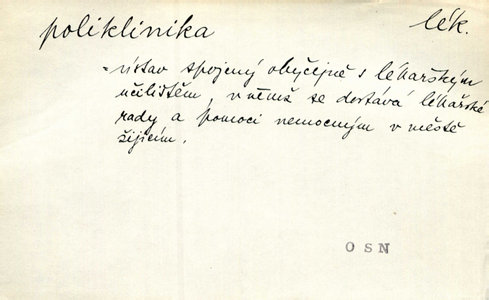 poliklinika lék.
= ústav spojený obyčejně s lékařským
učilištěm, v němž se dostává lékařské
rady a pomoci nemocným v městě
žijícím.
OSN